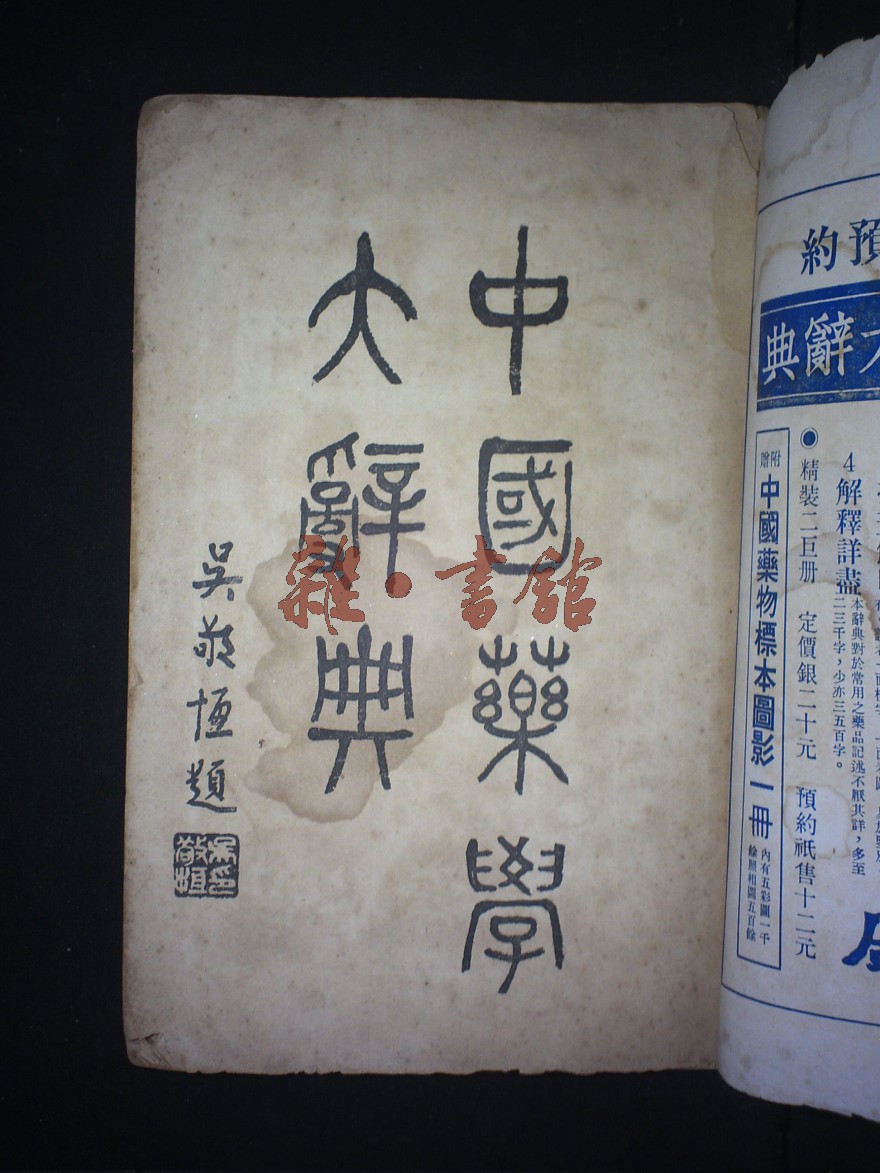 中國藥學
大辭典
吳敬恆題
吳印敬恆
雜·書館
預約
大辭典
4 解釋詳盡
本辭典對於常用之藥品記述不厭其詳,多至
二三千字,少亦三五百字。
精裝二巨册 定價銀二十元 預約祇售十二元
附贈 中國藥物標本圖影一冊 內有五彩圖一千
餘照相圖五百餘